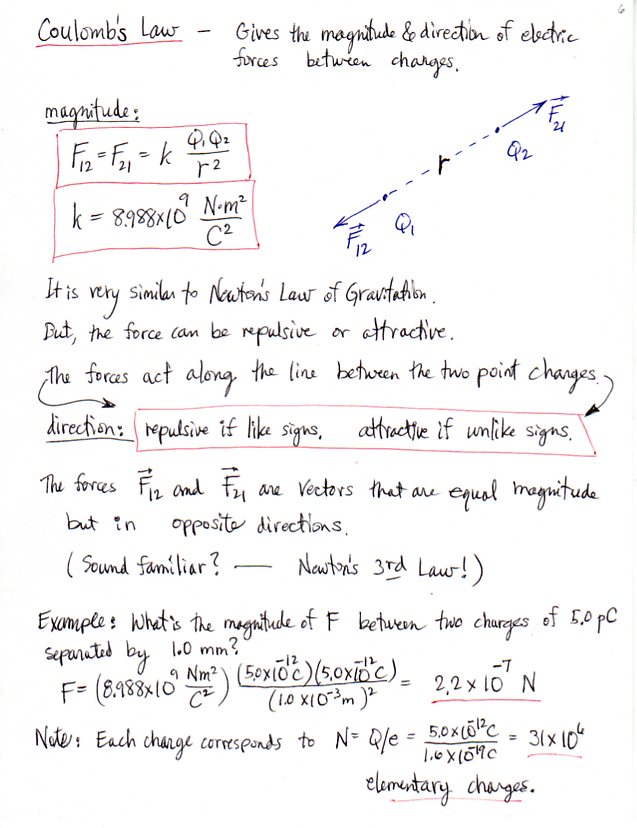 6
Coulomb's Law — Gives the magnitude & direction of electric
forces between charges.
magnitude:
F₁₂ = F₂₁ = k Q₁Q₂ / r²
k = 8.988×10⁹ N·m² / C²
F⃗₂₁
Q₂
r
Q₁
F⃗₁₂
It is very similar to Newton's Law of Gravitation.
But, the force can be repulsive or attractive.
The forces act along the line between the two point charges.
direction: repulsive if like signs. attractive if unlike signs.
The forces F⃗₁₂ and F⃗₂₁ are vectors that are equal magnitude
but in opposite directions.
(Sound familiar? — Newton's 3rd Law!)
Example: What is the magnitude of F between two charges of 5.0 pC
separated by 1.0 mm?
F = (8.988×10⁹ Nm²/C²) (5.0×10⁻¹²C)(5.0×10⁻¹²C) / (1.0×10⁻³m)² = 2.2×10⁻⁷ N
Note: Each charge corresponds to N = Q/e = 5.0×10⁻¹²C / 1.6×10⁻¹⁹C = 31×10⁶
elementary charges.